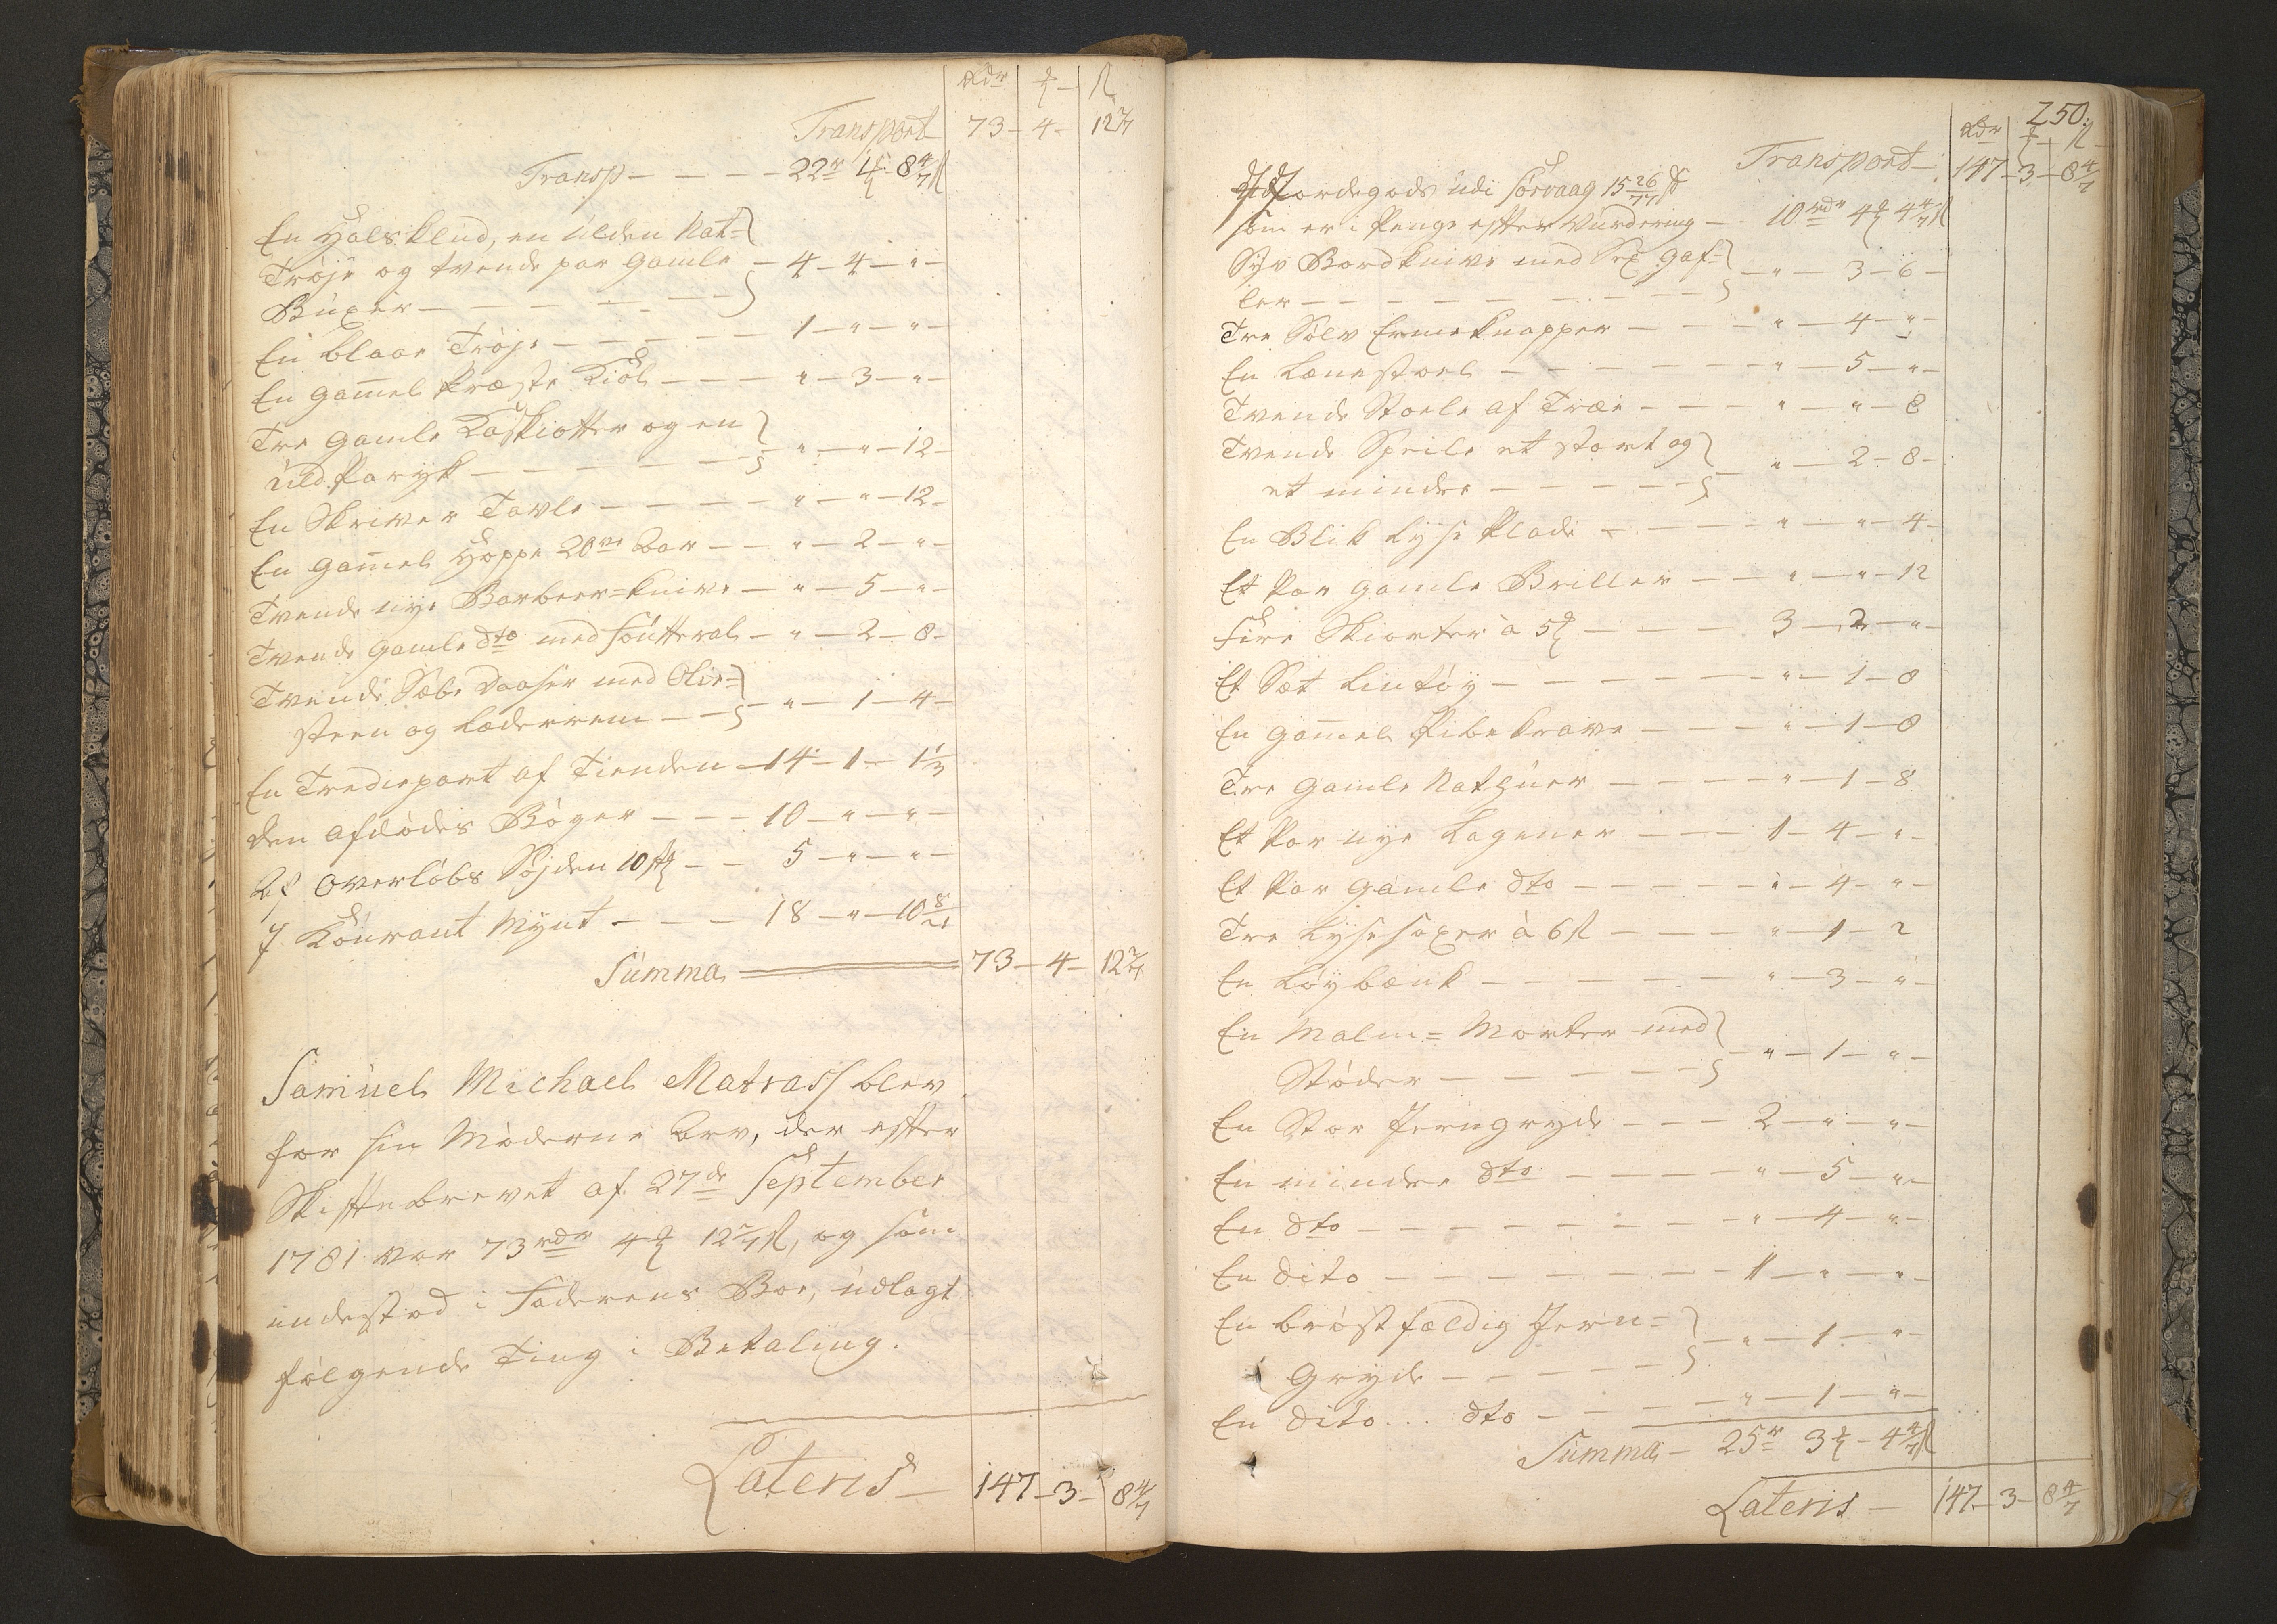 Rdr ₰ ß
Transport 73 - 4 - 12 2/7
Transp - - - - 22r 4 ₰ 8 4/7 ß
En Halsklud, en ulden Nat=
Trøje og tvende par gamle - 4 - 4 - " -
Buxer - - - - - -
En blaae Trøje - - - - - 1 - " - " -
En gam̄el Præste Kiol - - - " - 3 - " -
Tre gamle Kaskiotter og en
uld. Paryk - - - - - - " - " - 12 -
En Skriver Tavle - - - - " - " - 12 -
En gam̄el Hoppe 20ve Aar - - " - 2 - " -
Tvende nye Barbeer=knive - " - 5 - " -
Tvende gamle dto med Foutteral - " - 2 - 8 -
Tvende Sæbe Daaser med Olie=
steen og Læderrem - - - " - 1 - 4 -
En Trediepart af Tienden - 14 - 1 - 1 1/3
Den Afdødes Bøger - - - 10 - " - " -
Af Overløbs Søjden 10 - - 5 - " - " -
I Kourant Mynt - - - 18 - " - 10 8/21
Summa 73 - 4 - 12 2/7
Samuel Michael Matrass blev
for sin Møderne Arv, der efter
Skiftebrevet af 27de September
1781 var 73 rdr 4 ₰ 12 2/7 ß, og som
indestod i Faderens Boe, udlagt
følgende Ting i Betaling.
Lateris - 147 - 3 - 8 4/7
250.
Rdr ₰ ß
Transport - 147 - 3 - 8 4/7
Jordegods udi Sørvaag 15 26/77
som er i Penge efter Vurdering - 10 rdr 4 ₰ 4 4/7 ß
Syv Bordknive med Sex Gaf=
ler - - - - - - - - " - 3 - 6 -
Tre Sølv Ermeknapper - - - " - 4 - " -
En Lænestoel - - - - - " - 5 - " -
Tvende Stoele af Træe - - - " - " - 8
Tvende Speile et stort og
et mindre - - - - - " - 2 - 8 -
En Blik Lyse Plade - - - - " - " - 4 -
Et Par gamle Briller - - " - " - 12
Fire Skiorter à 5 ₰ - - - - 3 - 2 - " -
Et Sæt Lintøy - - - - - - " - 1 - 8
En gam̄el Pibekrave - - - " - 1 - 8
Tre gamle Nathuer - - - - " - 1 - 8
Et Par nye Lagener - - - 1 - 4 - " -
Et Par gamle dto - - - - - " - 4 - " -
Tre Lysesaxer à 6 ß - - - - " - 1 - 2
En Løybænk - - - - - - " - 3 - " -
En Malm=Morter med
Støder - - - - - - " - 1 - " -
En Stor Jerngryde - - - 2 - " - " -
En mindre dto - - - - - " - 5 - " -
En dto - - - - - - - - " - 4 - " -
En dito - - - - - - - 1 - " - " -
En brøstfældig Jern=
Gryde - - - - - " - 1 - " -
En dito... dto - - - - " - 1 - " -
Summa - 25r 3 ₰ - 4 4/7 ß
Lateris - 147 - 3 - 8 4/7